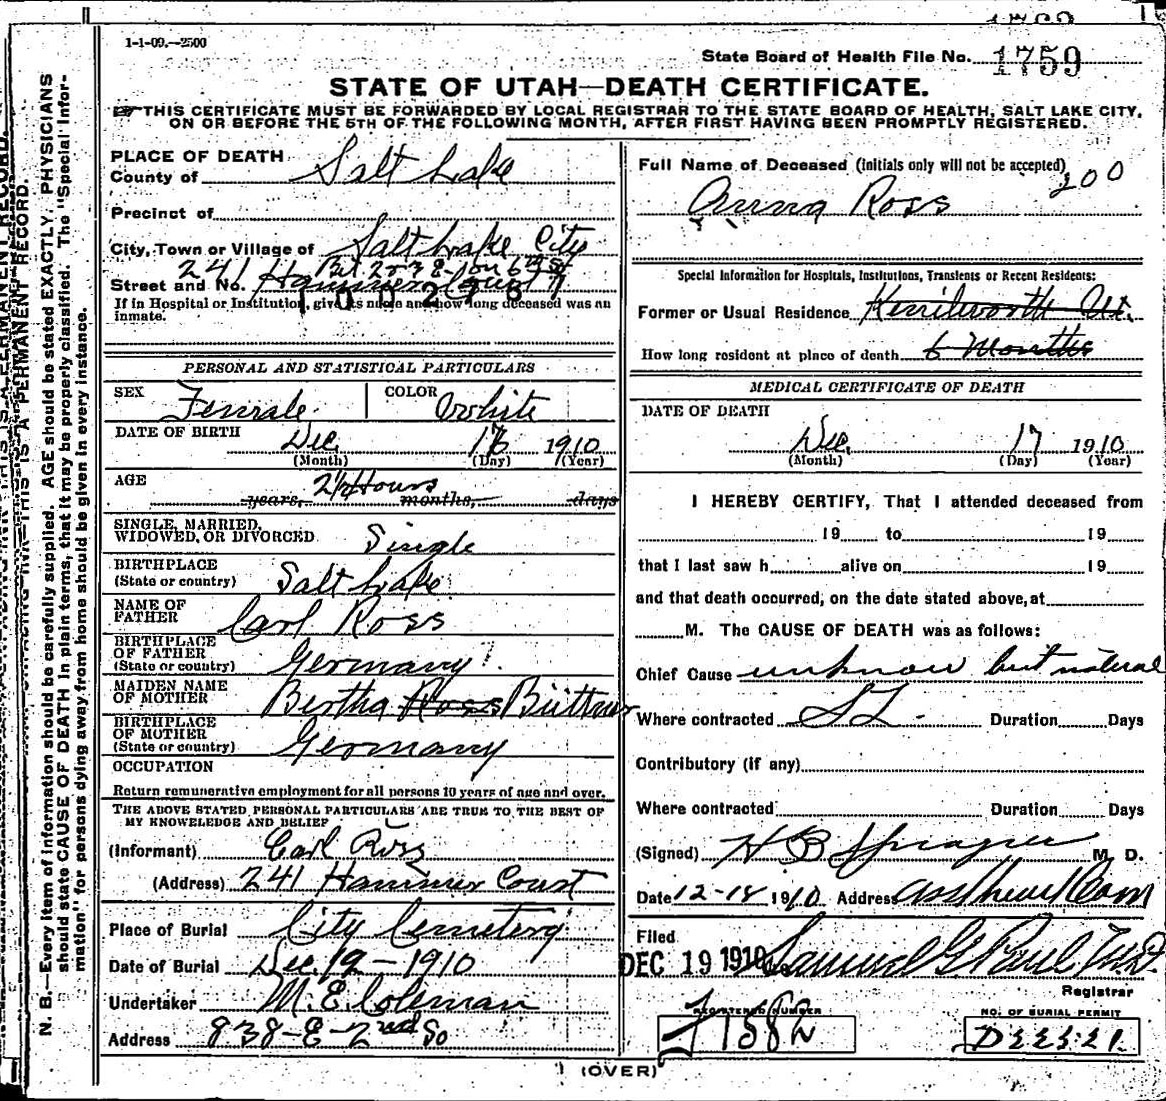 1-1-09.—2500
State Board of Health File No. 1759
STATE OF UTAH—DEATH CERTIFICATE.
THIS CERTIFICATE MUST BE FORWARDED BY LOCAL REGISTRAR TO THE STATE BOARD OF HEALTH, SALT LAKE CITY,
ON OR BEFORE THE 5TH OF THE FOLLOWING MONTH, AFTER FIRST HAVING BEEN PROMPTLY REGISTERED.
N. B.—Every item of information should be carefully supplied. AGE should be stated EXACTLY. PHYSICIANS
should state CAUSE OF DEATH in plain terms, that it may be properly classified. The "Special Infor-
mation" for persons dying away from home should be given in every instance.
THIS IS A PERMANENT RECORD.
PLACE OF DEATH
County of Salt Lake
Precinct of
City, Town or Village of Salt Lake City
Bet 2 & 3 E on 6th
Street and No. 241 Hammer Court
If in Hospital or Institution, give its name and how long deceased was an
inmate.
PERSONAL AND STATISTICAL PARTICULARS
SEX Female COLOR White
DATE OF BIRTH Dec. 1910
(Month) (Day) (Year)
AGE Hours
years, months, days
SINGLE, MARRIED,
WIDOWED, OR DIVORCED Single
BIRTHPLACE
(State or country) Salt Lake
NAME OF
FATHER Carl Ross
BIRTHPLACE
OF FATHER
(State or country) Germany
MAIDEN NAME
OF MOTHER Bertha Ross Büttner
BIRTHPLACE
OF MOTHER
(State or country) Germany
OCCUPATION
Return remunerative employment for all persons 10 years of age and over.
THE ABOVE STATED PERSONAL PARTICULARS ARE TRUE TO THE BEST OF
MY KNOWELEDGE AND BELIEF
(Informant) Carl Ross
(Address) 241 Hammer Court
Place of Burial City Cemetery
Date of Burial Dec. 19 - 1910
Undertaker M. E. Coleman
Address 838-E-2nd So
Full Name of Deceased (initials only will not be accepted)
200
Anna Ross
Special Information for Hospitals, Institutions, Transients or Recent Residents:
Former or Usual Residence Kenilworth Ut.
How long resident at place of death 6 Months
MEDICAL CERTIFICATE OF DEATH
DATE OF DEATH
Dec. 17 1910
(Month) (Day) (Year)
I HEREBY CERTIFY, That I attended deceased from
19 to 19
that I last saw h alive on 19
and that death occurred, on the date stated above, at
M. The CAUSE OF DEATH was as follows:
Chief Cause unknow but natural
Where contracted S L. Duration Days
Contributory (if any)
Where contracted Duration Days
(Signed) H B Sprague M. D.
Date 12-18 1910 Address
Filed
DEC 19 1910 Samuel G Paul M.D.
Registrar
REGISTERED NUMBER
1582
NO. OF BURIAL PERMIT
(OVER)